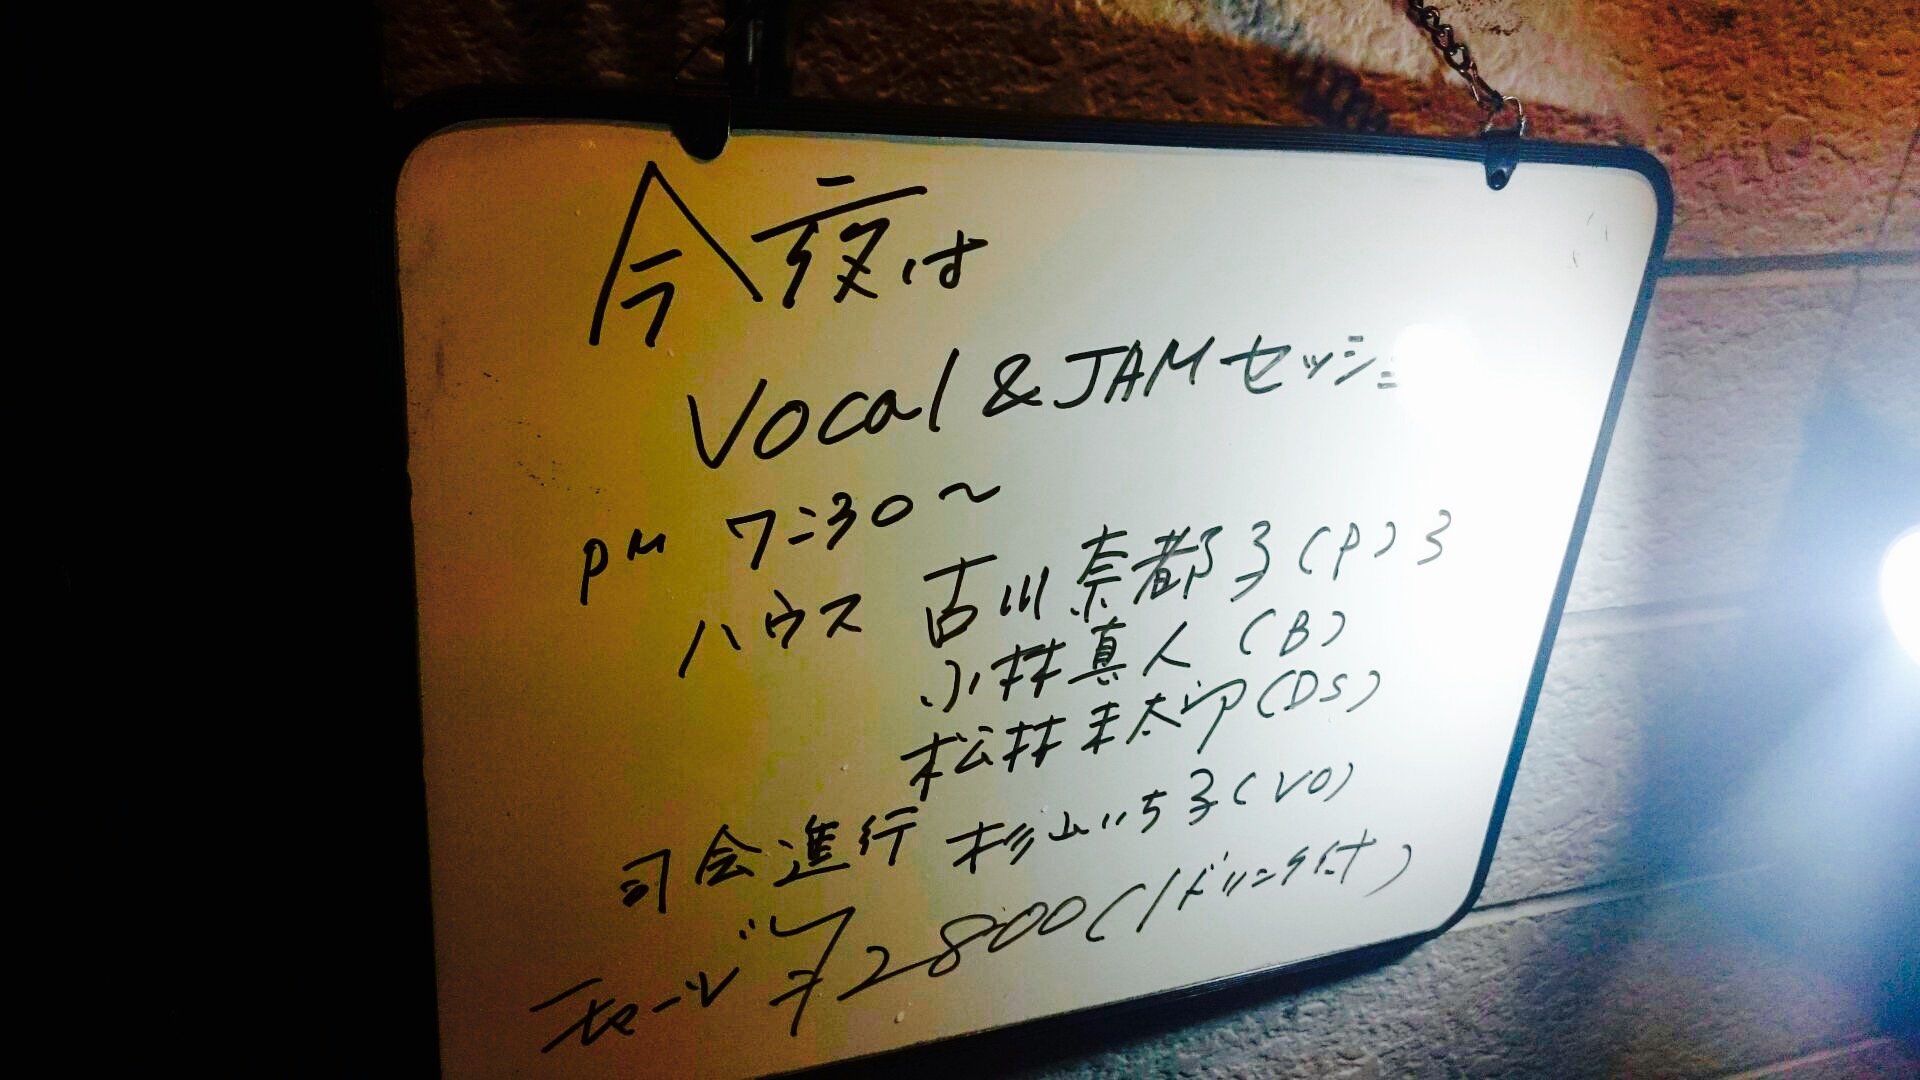 今夜は
Vocal & JAM セッショ
PM 7:30〜
ハウス 古川奈都子(P)
小林真人(B)
松林 太郎(DS)
司会進行 杉山いち子(VO)
チャージ ¥2800(1ドリンク付)